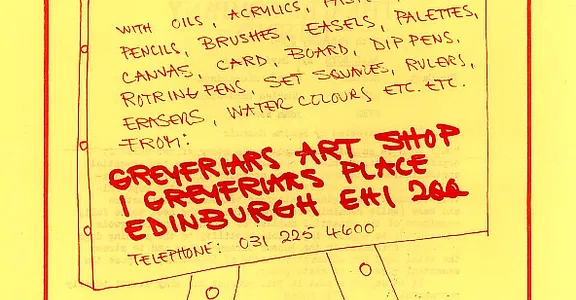 WITH OILS, ACRYLICS,
PENCILS, BRUSHES, EASELS, PALETTES,
CANVAS, CARD, BOARD, DIP PENS,
ROTRING PENS, SET SQUARES, RULERS,
ERASERS, WATER COLOURS ETC. ETC.
FROM:
GREYFRIARS ART SHOP
1 GREYFRIARS PLACE
EDINBURGH EH1 2QQ
TELEPHONE: 031 225 4600